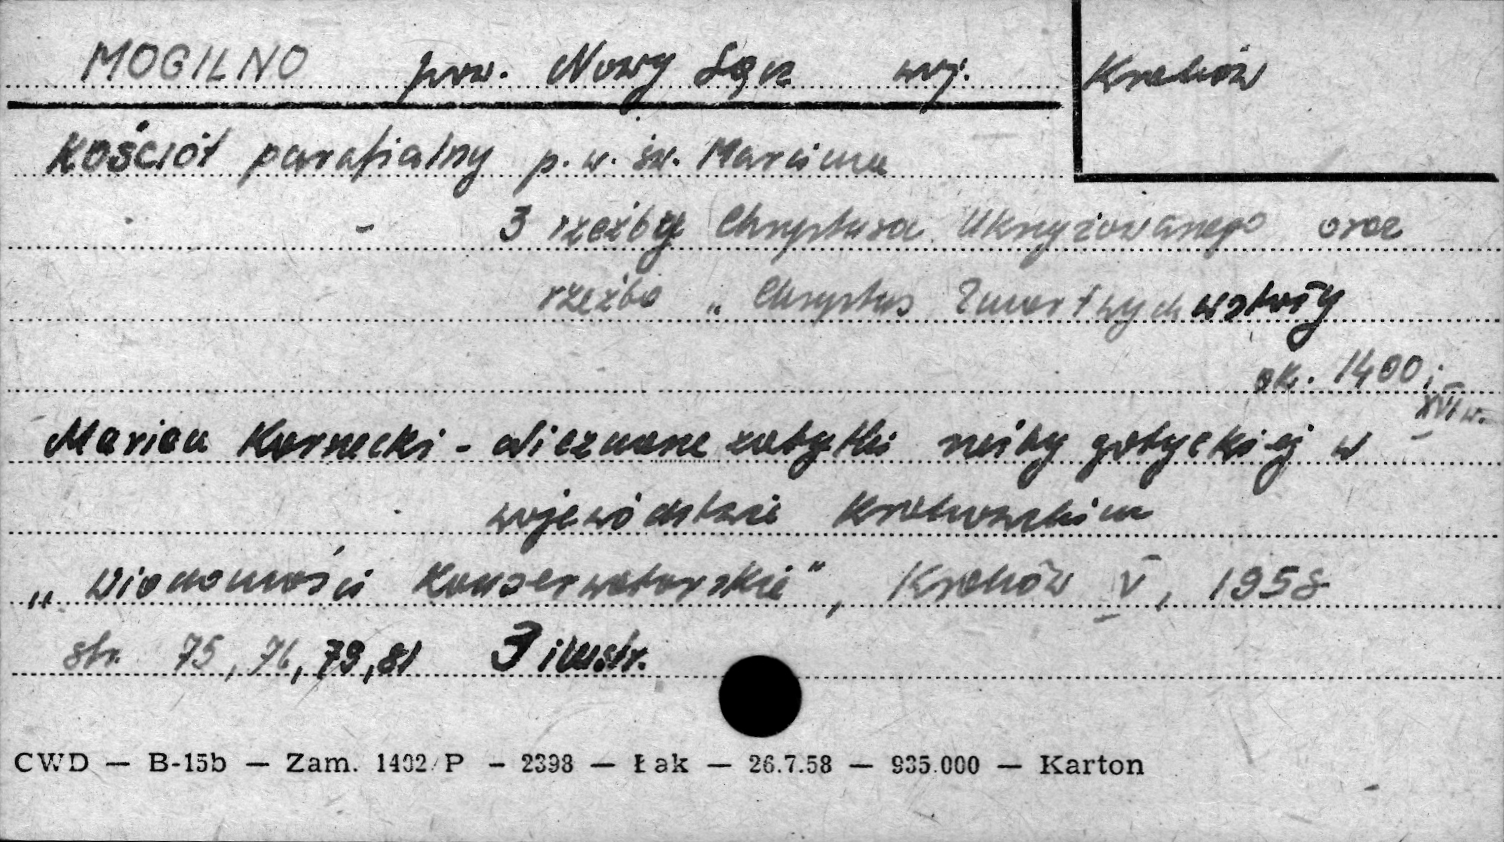 MOGILNO pow. Nowy Sącz woj. Kraków
Kościół parafialny p.w. św. Marcina
- 3 rzeźby Chrystusa Ukrzyżowanego oraz
rzeźba „Chrystus Zmartwychwstały
ok. 1400 i
XVI w.
Marian Kornecki - Nieznane zabytki rzeźby gotyckiej w
województwie Krakowskim
„Wiadomości Konserwatorskie", Kraków V, 1958
str. 75, 76, 79, 81 3 ilustr.
CWD — B-15b — Zam. 1402/P — 2398 — Łak — 26.7.58 — 935.000 — Karton